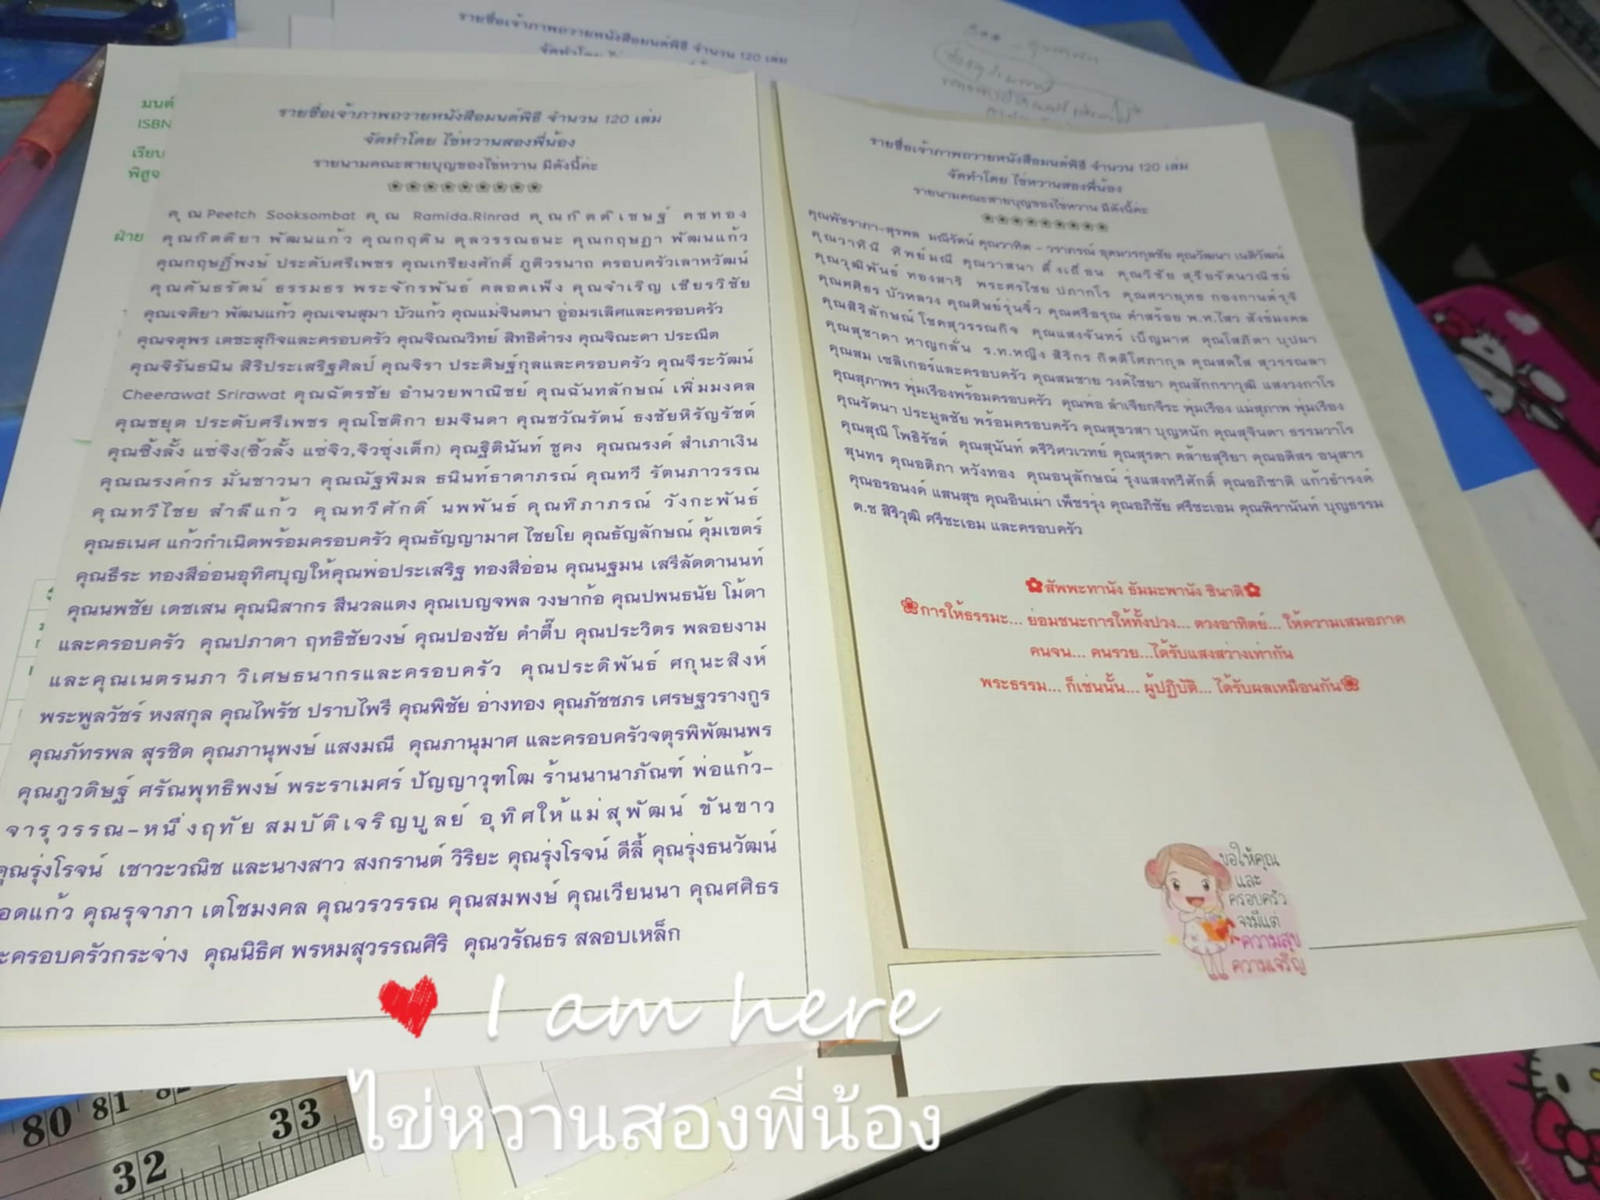 รายชื่อเจ้าภาพถวายหนังสือมนต์พิธี จำนวน 120 เล่ม
มนต์
ISBN
เรียบ
พิสูจ
ฝ่าย
รายชื่อเจ้าภาพถวายหนังสือมนต์พิธี จำนวน 120 เล่ม
จัดทำโดย ไข่หวานสองพี่น้อง
รายนามคณะสายบุญของไข่หวาน มีดังนี้ค่ะ
คุณPeetch Sooksombat คุณ Ramida.Rinrad คุณกิตติเชษฐ์ คชทอง
คุณกิตติยา พัฒนแก้ว คุณกฤติน ตุลวรรณธนะ คุณกฤษฏา พัฒนแก้ว
คุณกฤษฏิ์พงษ์ ประดับศรีเพชร คุณเกรียงศักดิ์ ภูติวรนาถ ครอบครัวเลาหวัฒน์
คุณคันธรัตน์ ธรรมธร พระจักรพันธ์ คลอดเพ็ง คุณจำเริญ เชียรวิชัย
คุณเจติยา พัฒนแก้ว คุณเจนสุมา บัวแก้ว คุณแม่จินตนา อู่อมรเลิศและครอบครัว
คุณจตุพร เตชะสุกิจและครอบครัว คุณจิณณวิทย์ สิทธิดำรง คุณจิณะตา ประณีต
คุณจิรันธนิน สิริประเสริฐศิลป์ คุณจิรา ประดิษฐ์กุลและครอบครัว คุณจีระวัฒน์
Cheerawat Srirawat คุณฉัตรชัย อำนวยพาณิชย์ คุณฉันทลักษณ์ เพิ่มมงคล
คุณชยุต ประดับศรีเพชร คุณโชติกา ยมจินดา คุณชวัณรัตน์ ธงชัยหิรัญรัชต์
คุณซิ้งลั้ง แซ่จิง(ซิ้วลั้ง แซ่จิว,จิวซุ่งเต็ก) คุณฐิตินันท์ ชูคง คุณณรงค์ สำเภาเงิน
คุณณรงค์กร มั่นชาวนา คุณณัฐพิมล ธนินท์ธาดาภรณ์ คุณทวี รัตนภาวรรณ
คุณทวีไชย สำลีแก้ว คุณทวีศักดิ์ นพพันธ์ คุณทิภาภรณ์ วังกะพันธ์
คุณธเนศ แก้วกำเนิดพร้อมครอบครัว คุณธัญญามาศ ไชยโย คุณธัญลักษณ์ คุ้มเขตร์
คุณธีระ ทองสีอ่อนอุทิศบุญให้คุณพ่อประเสริฐ ทองสีอ่อน คุณนฐมน เสรีลัดดานนท์
คุณนพชัย เดชเสน คุณนิสากร สีนวลแดง คุณเบญจพล วงษาก้อ คุณปพนธนัย โม้ดา
และครอบครัว คุณปภาดา ฤทธิชัยวงษ์ คุณปองชัย คำติ๊บ คุณประวิตร พลอยงาม
และคุณเนตรนภา วิเศษธนากรและครอบครัว คุณประดิพันธ์ ศกุนะสิงห์
พระพูลวัชร์ หงสกุล คุณไพรัช ปราบไพรี คุณพิชัย อ่างทอง คุณภัชชภร เศรษฐวรางกูร
คุณภัทรพล สุรชิต คุณภานุพงษ์ แสงมณี คุณภานุมาศ และครอบครัวจตุรพิพัฒนพร
คุณภูวดิษฐ์ ศรัณพุทธิพงษ์ พระราเมศร์ ปัญญาวุฑโฒ ร้านนานาภัณฑ์ พ่อแก้ว-
จารุวรรณ-หนึ่งฤทัย สมบัติเจริญบูลย์ อุทิศให้แม่สุพัฒน์ ขันขาว
คุณรุ่งโรจน์ เชาวะวณิช และนางสาว สงกรานต์ วิริยะ คุณรุ่งโรจน์ ดีลี้ คุณรุ่งธนวัฒน์
อดแก้ว คุณรุจาภา เตโชมงคล คุณวรวรรณ คุณสมพงษ์ คุณเวียนนา คุณศศิธร
ะครอบครัวกระจ่าง คุณนิธิศ พรหมสุวรรณศิริ คุณวรัณธร สลอบเหล็ก
รายชื่อเจ้าภาพถวายหนังสือมนต์พิธี จำนวน 120 เล่ม
จัดทำโดย ไข่หวานสองพี่น้อง
รายนามคณะสายบุญของไข่หวาน มีดังนี้ค่ะ
คุณพัชราภา-สุรพล มณีรัตน์ คุณวาทิต - วราภรณ์ อุดมวรกุลชัย คุณวัฒนา เนติวัฒน์
คุณวาทินี ทิพย์มณี คุณวาสนา ติ๊งเถื่อน คุณวิชัย สุริยรัตนวณิชย์
คุณวุฒิพันธ์ ทองสารี พระศรไชย ปภากโร คุณศรายุทธ กองกานต์รุจิ
คุณศศิธร บัวหลวง คุณศิษย์รุ่นจิ๋ว คุณศรีอรุณ คำสร้อย พ.ท.ไสว สังข์มงคล
คุณสิริลักษณ์ โชคสุวรรณกิจ คุณแสงจันทร์ เบ็ญมาศ คุณโสภิตา บุปผา
คุณสุชาดา หาญกลั่น ร.ท.หญิง สิริกร กิตติโศภากุล คุณสดใส สุวรรณลา
คุณสม เซลิเกอร์และครอบครัว คุณสมชาย วงค์ไชยา คุณสักกราวุฒิ แสงวงกาโร
คุณสุภาพร พุ่มเรืองพร้อมครอบครัว คุณพ่อ ลำเจียกจีระ พุ่มเรือง แม่สุภาพ พุ่มเรือง
คุณรัตนา ประมูลชัย พร้อมครอบครัว คุณสุขวสา บุญหนัก คุณสุจินตา ธรรมวาโร
คุณสุณี โพธิรัชต์ คุณสุนันท์ ตรีวิศวเวทย์ คุณสุรดา คล้ายสุริยา คุณอดิสร อนุสาร
สุนทร คุณอติภา หวังทอง คุณอนุลักษณ์ รุ่งแสงทวีศักดิ์ คุณอภิชาติ แก้วธำรงค์
คุณอรอนงค์ แสนสุข คุณอินเผ่า เพ็ชรรุ่ง คุณอภิชัย ศรีชะเอม คุณพิรานันท์ บุญธรรม
ด.ช สิริวุฒิ ศรีชะเอม และครอบครัว
สัพพะทานัง ธัมมะทานัง ชินาติ
การให้ธรรมะ... ย่อมชนะการให้ทั้งปวง... ดวงอาทิตย์... ให้ความเสมอภาค
คนจน... คนรวย...ได้รับแสงสว่างเท่ากัน
พระธรรม... ก็เช่นนั้น... ผู้ปฏิบัติ... ได้รับผลเหมือนกัน
ขอให้คุณ
และ
ครอบครัว
จงมีแต่
ความสุข
ความเจริญ
I am here
ไข่หวานสองพี่น้อง
80 81 82
32 33